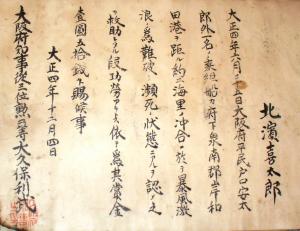 北濱喜太郎
大正四年六月二十五日大阪府平民戸口安太
郎外一名ノ乗組ノ船カ府下泉南郡岸和
田港ヲ距ル約三海里ノ沖合ニ於テ暴風激
浪ノ為難破シ瀕死ノ状態ニアルヲ認メ之
ヲ救助シタル段功労アリトス依テ為其賞金
壹圓五拾銭ヲ賜候事
大正四年十二月四日
大阪府知事従三位勲二等大久保利武